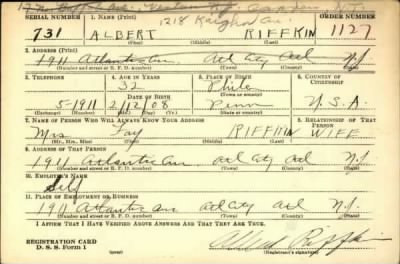 SERIAL NUMBER 1. NAME (Print) ORDER NUMBER
1218 Kaighn Av.
731 ALBERT RIFFKIN 1127
(First) (Middle) (Last)
2. ADDRESS (Print)
1911 Atlantic Ave Atl City Atl N.J.
(Number and street or R. F. D. number) (Town) (County) (State)
3. TELEPHONE 4. AGE IN YEARS 5. PLACE OF BIRTH 6. COUNTRY OF CITIZENSHIP
32 Phila
DATE OF BIRTH (Town or county)
5-1911 2/12/08 Penn U.S.A.
(Exchange) (Number) (Mo.) (Day) (Yr.) (State or country)
7. NAME OF PERSON WHO WILL ALWAYS KNOW YOUR ADDRESS 8. RELATIONSHIP OF THAT PERSON
Mrs Fay RIFFKIN WIFE
(Mr., Mrs., Miss) (First) (Middle) (Last)
9. ADDRESS OF THAT PERSON
1911 Atlantic Ave Atl City Atl N.J.
(Number and street or R. F. D. number) (Town) (County) (State)
10. EMPLOYER'S NAME
Self
11. PLACE OF EMPLOYMENT OR BUSINESS
1911 Atlantic Ave Atl City Atl N.J.
(Number and street or R. F. D. number) (Town) (County) (State)
I AFFIRM THAT I HAVE VERIFIED ABOVE ANSWERS AND THAT THEY ARE TRUE.
REGISTRATION CARD
D. S. S. Form 1 (Registrant's signature)